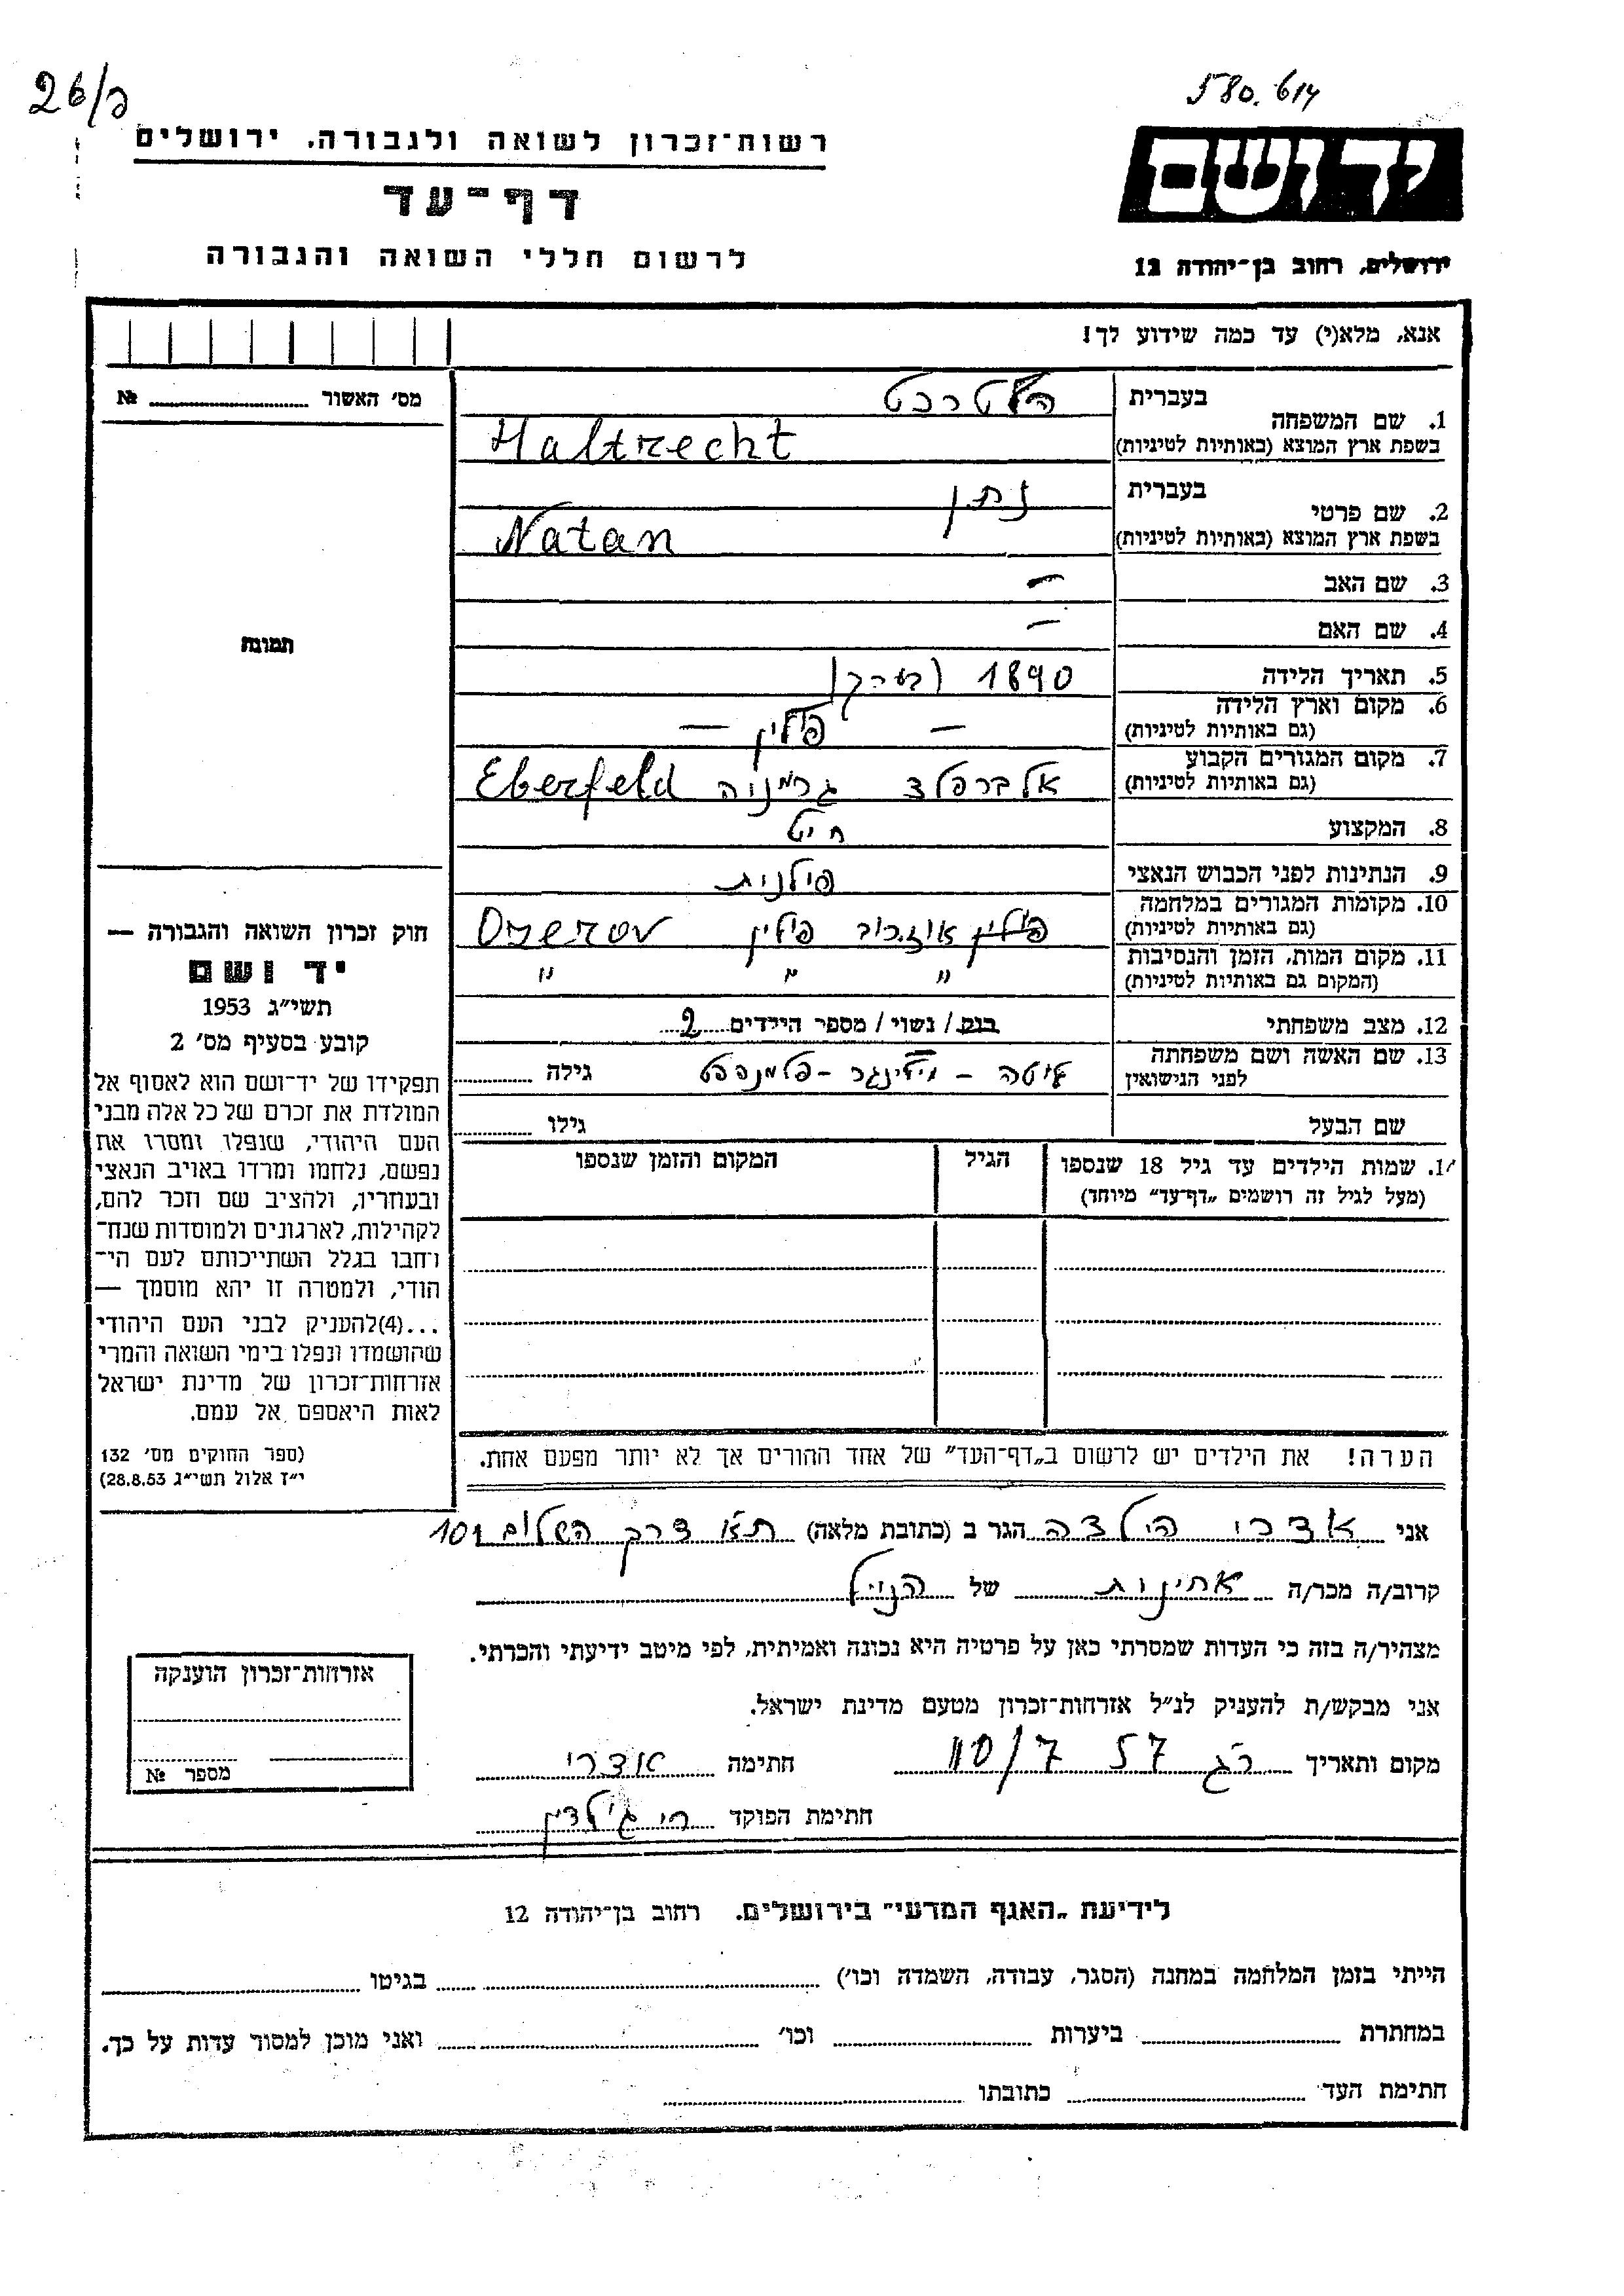 26/כ
580.614
רשות־זכרון לשואה ולגבורה, ירושלים
דף־עד
לרשום חללי השואה והגבורה
ידושם
ירושלים, רחוב בן־יהודה 12
אנא, מלא(י) עד כמה שידוע לך!
מס׳ האשור № 
תמונה
1. שם המשפחה
בעברית הלטרכט
בשפת ארץ המוצא (באותיות לטיניות) Haltrecht
2. שם פרטי
בעברית נתן
בשפת ארץ המוצא (באותיות לטיניות) Natan
3. שם האב –
4. שם האם –
5. תאריך הלידה 1890 (בערך)
6. מקום וארץ הלידה (גם באותיות לטיניות) – פולין –
7. מקום המגורים הקבוע (גם באותיות לטיניות) אלברפלד גרמניה Eberfeld
8. המקצוע חיט
9. הנתינות לפני הכבוש הנאצי פולנית
10. מקומות המגורים במלחמה (גם באותיות לטיניות) פולין אוז׳רוב פולין Ozerov
11. מקום המות, הזמן והנסיבות (המקום גם באותיות לטיניות) " " "
12. מצב משפחתי רווק / נשוי / מספר הילדים 2
13. שם האשה ושם משפחתה לפני הנישואין
גילה
שם הבעל גילו
שמות הילדים עד גיל 18 שנספו
(מעל לגיל זה רושמים „דף־עד” מיוחד)
הגיל
המקום והזמן שנספו
הערה! את הילדים יש לרשום ב„דף־העד” של אחד ההורים אך לא יותר מפעם אחת.
חוק זכרון השואה והגבורה —
יד ושם
תשי״ג 1953
קובע בסעיף מס׳ 2
תפקידו של יד־ושם הוא לאסוף אל
המולדת את זכרם של כל אלה מבני
העם היהודי, שנפלו ומסרו את
נפשם, נלחמו ומרדו באויב הנאצי
ובעוזריו, ולהציב שם וזכר להם,
לקהילות, לארגונים ולמוסדות שנח־
רחבו בגלל השתייכותם לעם הי־
הודי, ולמטרה זו יהא מוסמך —
...(4)להעניק לבני העם היהודי
שהושמדו ונפלו בימי השואה והמרי
אזרחות־זכרון של מדינת ישראל
לאות היאספם אל עמם.
(ספר החוקים מס׳ 132
י״ז אלול תשי״ג 28.8.53)
אני אדרי הילדה הגר ב (כתובת מלאה) ת״א דרך השלום 101
קרוב/ה מכר/ה אחינות של הנ״ל
מצהיר/ה בזה כי העדות שמסרתי כאן על פרטיה היא נכונה ואמיתית, לפי מיטב ידיעתי והכרתי.
אני מבקש/ת להעניק לנ״ל אזרחות־זכרון מטעם מדינת ישראל.
מקום ותאריך רג 10/7 57 חתימה אדרי
חתימת הפוקד
אזרחות־זכרון הוענקה
מספר №
לידיעת „האגף המדעי” בירושלים. רחוב בן־יהודה 12
הייתי בזמן המלחמה במחנה (הסגר, עבודה, השמדה וכו׳) בגיטו
במחתרת ביערות וכו׳ ואני מוכן למסור עדות על כך.
חתימת העד כתובתו